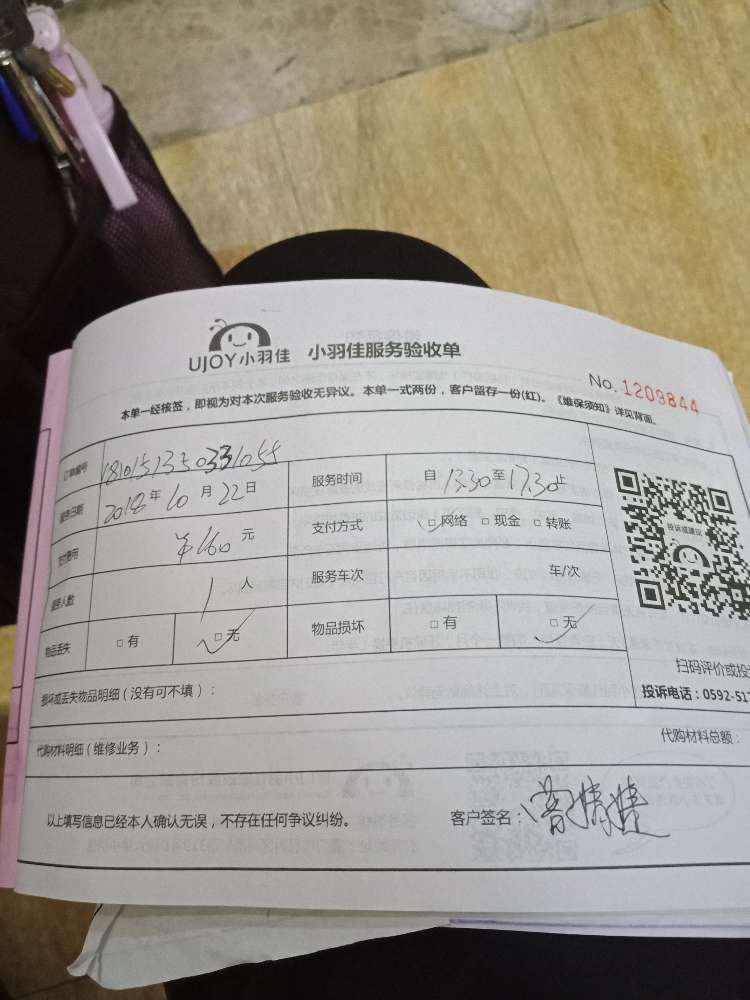 UJOY小羽佳 小羽佳服务验收单
No. 1209844
本单一经核签，即视为对本次服务验收无异议。本单一式两份，客户留存一份(红)。《维保须知》详见背面。
订单编号 1810151350331055 服务时间 自 13:30 至 17:30 止
服务日期 2018 年 10 月 22 日
支付费用 ¥160 元 支付方式 □网络 □现金 □转账
服务人数 1 人 服务车次 车/次
物品丢失 □有 □无 物品损坏 □有 □无
投诉或建议
扫码评价或投
投诉电话：0592-517
损坏或丢失物品明细（没有可不填）：
代购材料明细（维修业务）： 代购材料总额：
以上填写信息已经本人确认无误，不存在任何争议纠纷。 客户签名：